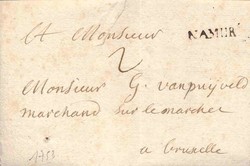 A Monsieur
NAMUR
2
Monsieur G. vanpuijveld
marchand sur le marchez
a bruxelle
1753